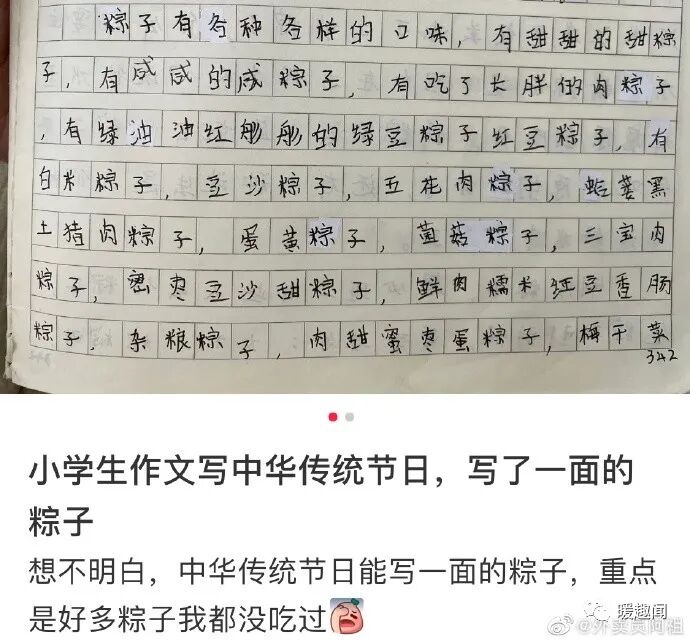 粽子有各种各样的口味，有甜甜的甜粽
子，有咸咸的咸粽子，有吃了长胖的肉粽子
，有绿油油红彤彤的绿豆粽子红豆粽子，有
白米粽子，豆沙粽子，五花肉粽子，蛤蒌黑
土猪肉粽子，蛋黄粽子，菌菇粽子，三宝肉
粽子，密枣豆沙甜粽子，鲜肉糯米红豆香肠
粽子，杂粮粽子，肉甜蜜枣蛋粽子，梅干菜
342
小学生作文写中华传统节日，写了一面的
粽子
想不明白，中华传统节日能写一面的粽子，重点
是好多粽子我都没吃过
暖趣闻
@外卖员阿祖